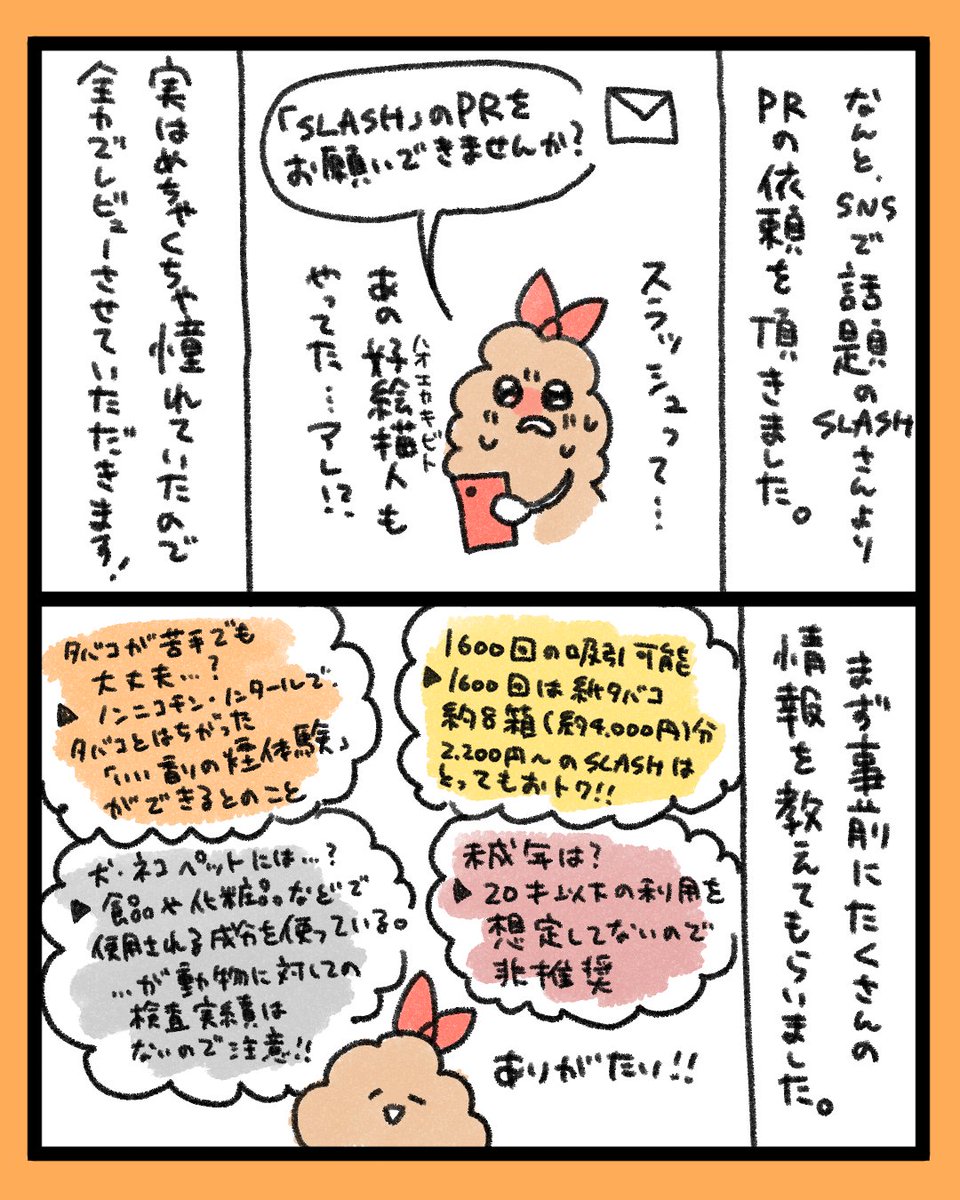 なんと、SNSで話題のSLASHさんより
PRの依頼を頂きました。
「SLASH」のPRを
お願いできませんか?
スラッシュって…
あの好絵描人も
ハオエカキビト
やってた…アレ!?
実はめちゃくちゃ憧れていたので
全力でレビューさせていただきます!
まず事前にたくさんの
情報を教えてもらいました。
1600回の吸引可能
▶1600回は紙タバコ
約8箱(約4.000円)分
2.200円〜のSLASHは
とってもおトク!!
タバコが苦手でも
大丈夫…?
▶ノンニコチン・ノンタールで、
タバコとはちがった
「いい香りの煙体験」
ができるとのこと
未成年は?
▶20才以下の利用を
想定してないので
非推奨
犬・ネコ ペットには…?
▶食品や化粧品などで
使用される成分を使っている。
…が動物に対しての
検査実績は
ないので注意!!
ありがたい!!